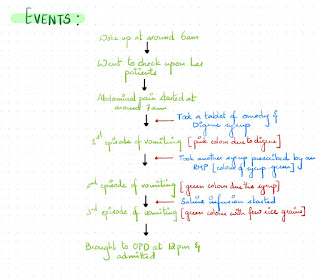 EVENTS:
Woke up at around 6am
Went to check upon her
patients
Abdominal pain started at
around 7am
Took a tablet of omedy &
Digene syrup
1st episode of vomiting [pink colour due to digene]
Took another syrup prescribed by an
RMP [colour of syrup-green]
2nd episode of vomiting [green colour due the syrup]
Saline infusion started
3rd episode of vomiting [green colour with few rice grains]
Brought to OPD at 12pm &
admitted